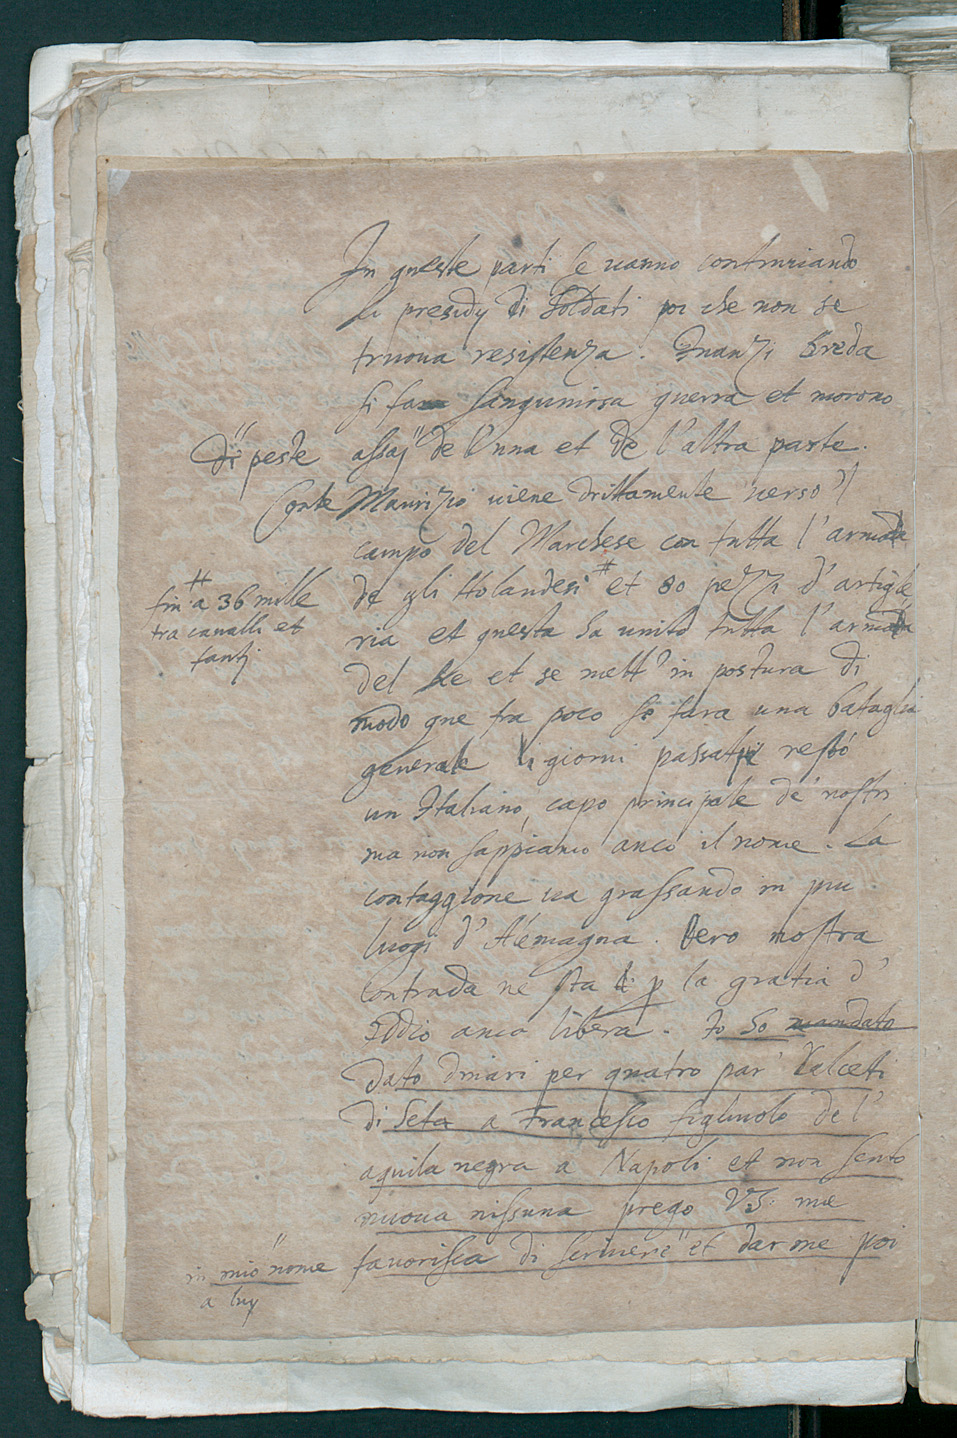 In queste parti se vanno contruciando
li presidy di Soldati poi che non se
truova resistenza. Inanzi Breda
si fa sanguinosa guerra et morono
di peste assaj de l'una et de l'altra parte.
Conte Maurizio viene drittamente verso 'l
campo del Marchese con tutta l'armada
fin' a 36 mille
tra cavalli et
fantj
de gli Holandesi # et 80 pezzi d'artigle
ria et questa ha unito tutta l'armada
del Re et se mett' in postura di
modo que fra poco se fara una bataglia
generale li giorni passati restó
un Italiano, capo principale de nostri
ma non sappiamo anco il nome. La
contaggione va grassando in piu
luogi d'Alemagna. Pero nostra
Contrada ne sta p la gratia d'
Iddio anco libera. Io ho mandato
dato dinari per quatro par' Calcetti
di Seta a Francesco figliuolo de l'
aquila negra a Napoli et non sento
nuova nissuna prego VS. me
favorisca di scrivere" et dar me poi
in mio nome
a luy